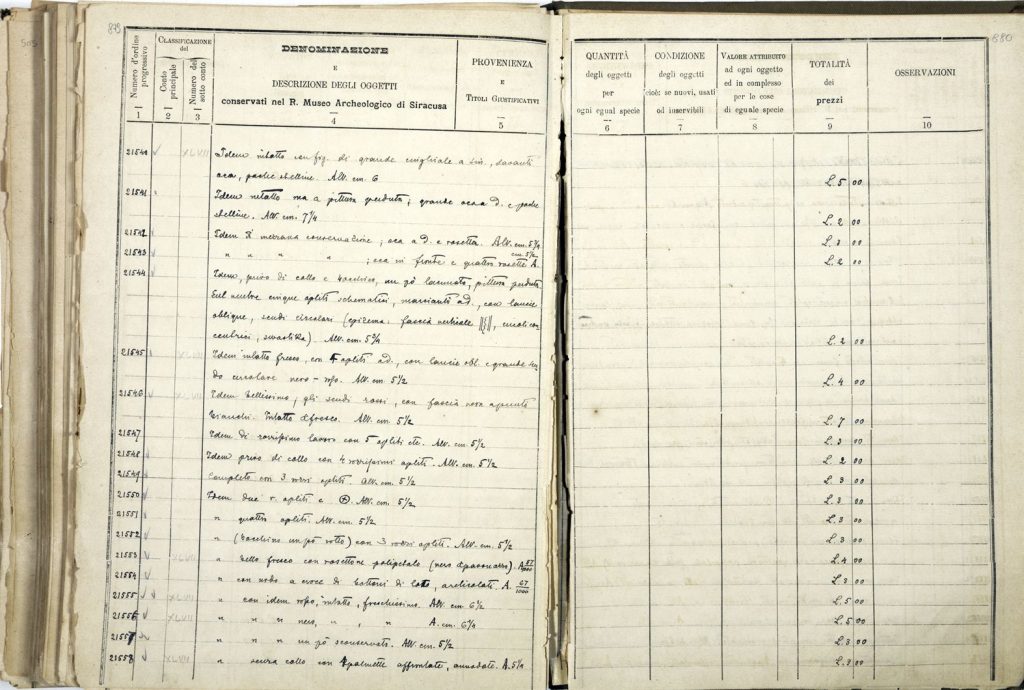 879
880
505
Numero d'ordine progressivo
CLASSIFICAZIONE del
Conto principale
Numero del sotto conto
DENOMINAZIONE
E
DESCRIZIONE DEGLI OGGETTI
conservati nel R. Museo Archeologico di Siracusa
PROVENIENZA
E
TITOLI GIUSTIFICATIVI
QUANTITÀ
degli oggetti
per
ogni egual specie
CONDIZIONE
degli oggetti
cioè: se nuovi, usati
od inservibili
VALORE ATTRIBUITO
ad ogni oggetto
ed in complesso
per le cose
di eguale specie
TOTALITÀ
dei
prezzi
OSSERVAZIONI
1 2 3 4 5 6 7 8 9 10
21540 XLVII Idem intatto con fig. di grande cinghiale a sin., davanti
oca, poche stelline. Alt. cm. 6 L. 5 00
21541 Idem intatto ma a pittura perduta; grande oca a d. e poche
stelline. Alt. cm. 7 1/4 L. 2 00
21542 Idem di mediana conservazione; oca a d. e rosetta. Alt. cm. 5 3/4 L. 3 00
21543 " " " " ; oca in fronte e quattro rosette A. cm. 5 1/2 L. 2 00
21544 Idem, privo di collo e bocchino, un pò lacunato, pittura perduta
Sul ventre cinque opliti schematici, marcianti a d., con lancie
oblique, scudi circolari (epizema: fascia verticale, cerchi con
centrici, swastika). Alt. cm. 5 3/4 L. 2 00
21545 Idem intatto fresco, con 4 opliti a d., con lancie obl. e grande scu
do circolare nero-roso. Alt. cm. 5 1/2 L. 4 00
21546 XLVII Idem bellissimo; gli scudi rossi, con fascia nera a punti
bianchi. Intatto e fresco. Alt. cm. 5 1/2 L. 7 00
21547 Idem di rozzissimo lavoro con 5 opliti etc. Alt. cm. 5 1/2 L. 3 00
21548 Idem privo di collo con 4 rozzissimi opliti. Alt. cm. 5 1/2 L. 2 00
21549 Completo con 3 rozzi opliti. Alt. cm. 5 1/2 L. 3 00
21550 Idem due r. opliti e ⊗. Alt. cm. 5 1/2 L. 3 00
21551 " quattro opliti. Alt. cm. 5 1/2 L. 3 00
21552 " (bocchino un pò rotto) con 3 rozzi opliti. Alt. cm. 5 1/2 L. 3 00
21553 XLVII " bello fresco con rosettone polipetalo (nero e paonazzo). A. 67/1000 L. 4 00
21554 " con nodo a croce di bottoni di loto, articolati. A. 67/1000 L. 3 00
21555 " con idem roso, intatto, freschissimo. Alt. cm. 6 1/2 L. 5 00
21556 XLVII " " " nero, " , " A. cm. 6 1/4 L. 5 00
21557 " " " " un pò sconservati. Alt. cm. 5 1/2 L. 3 00
21558 XLVII " senza collo con palmette affrontate, annodate. A. 5 1/4 L. 3 00